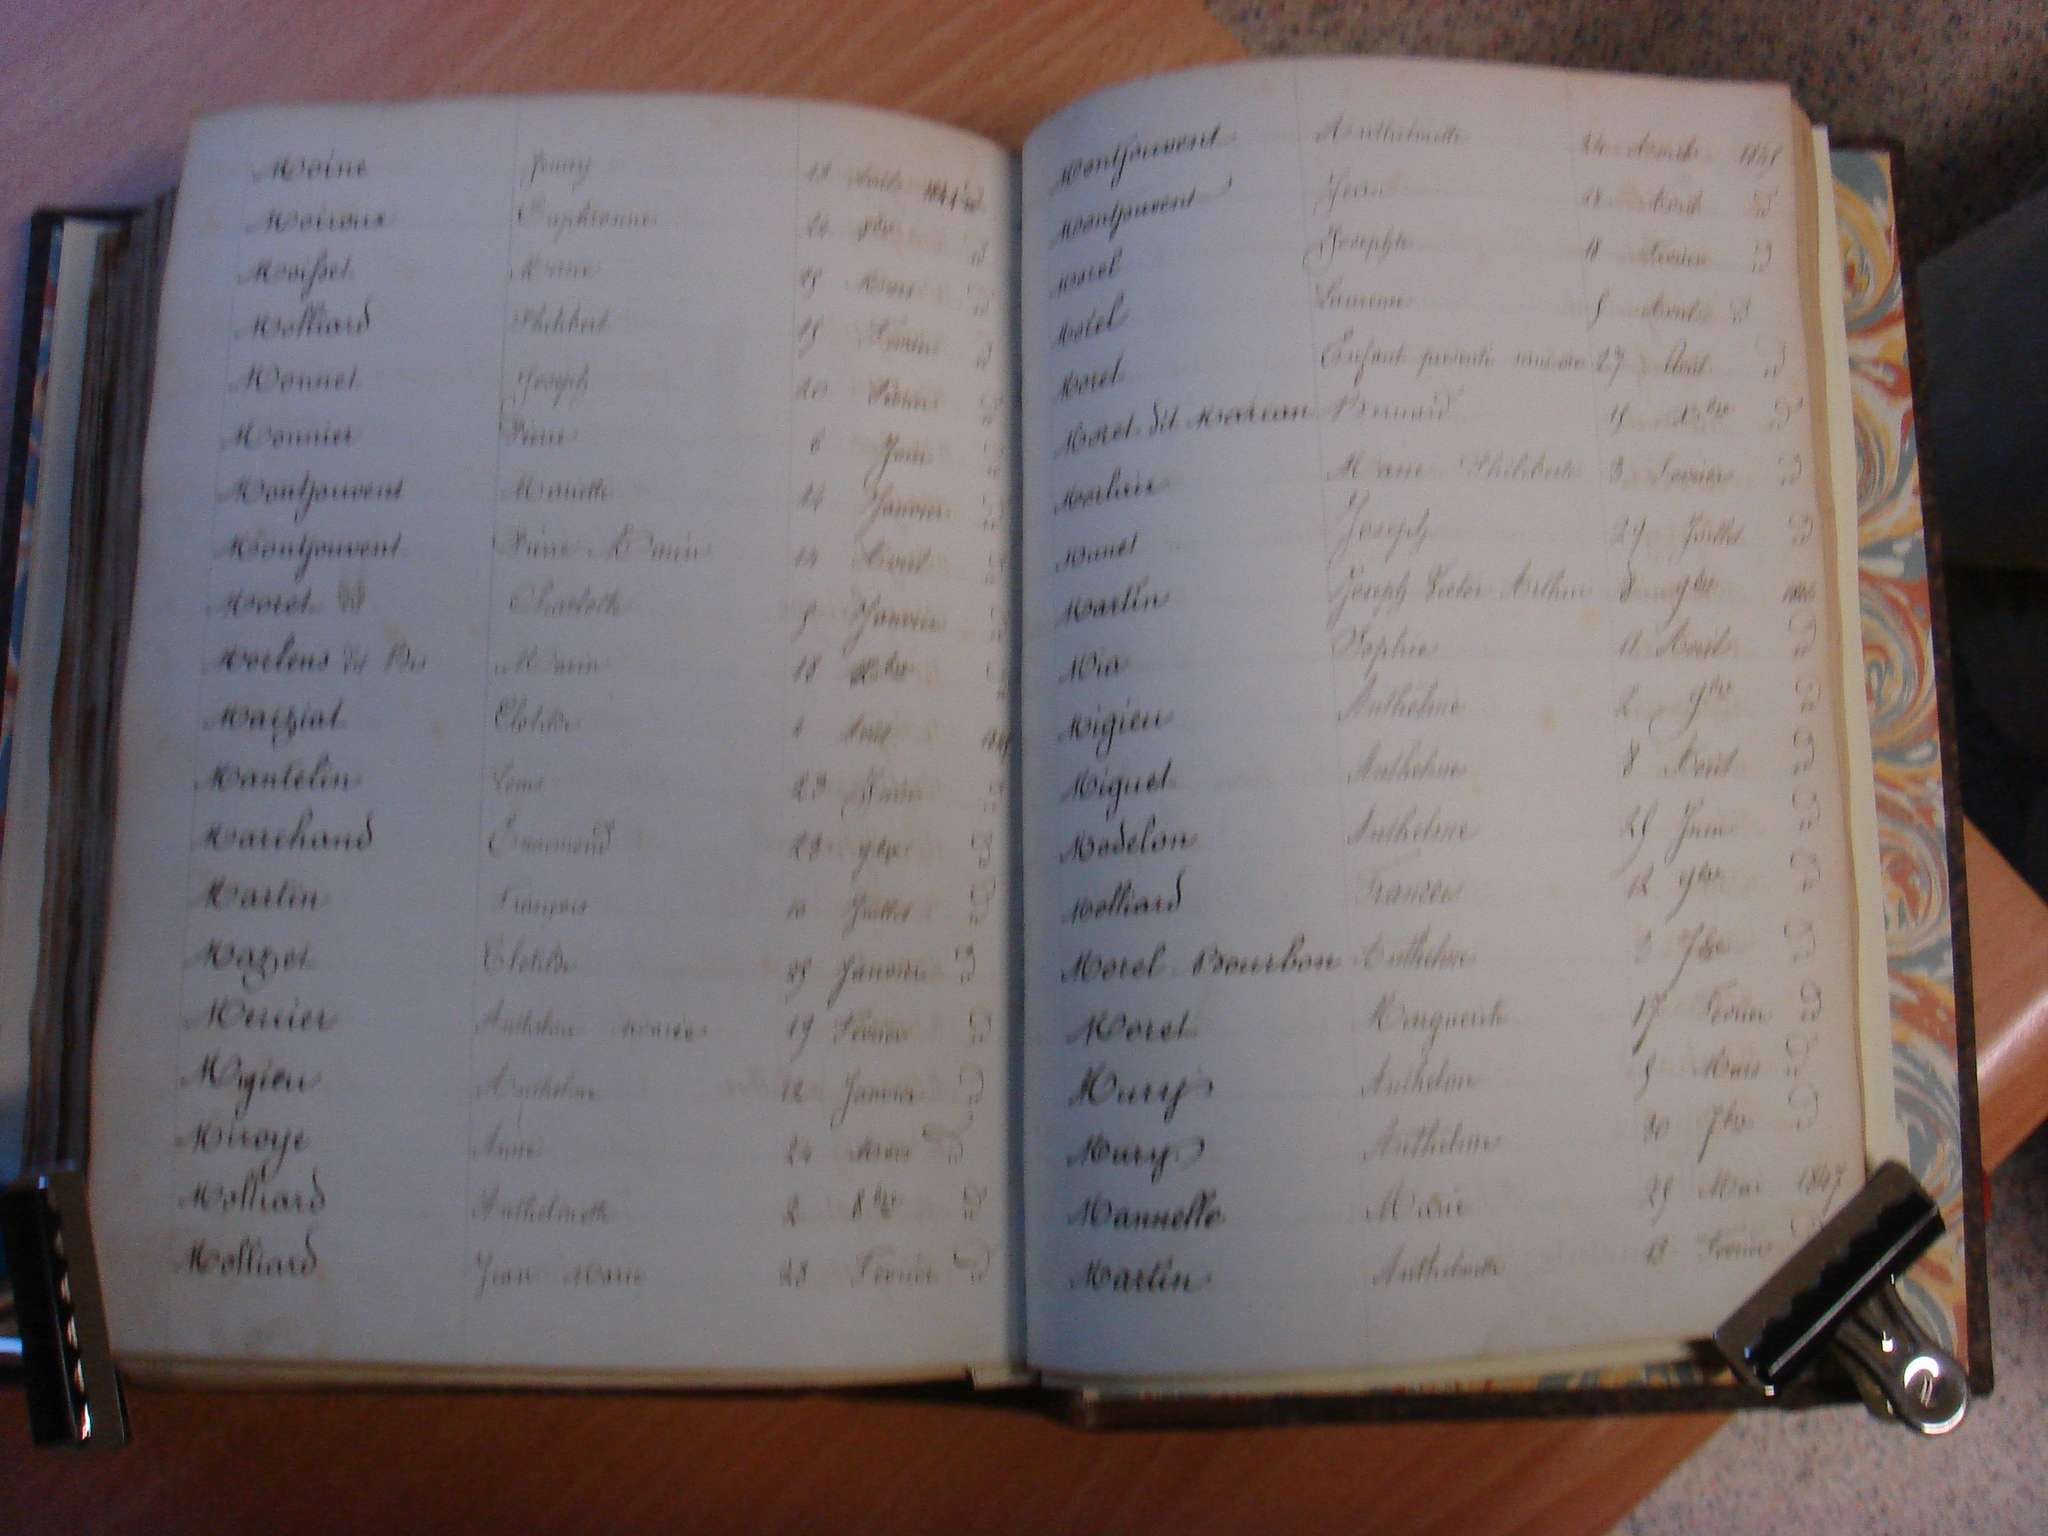 Moine Jenny 18 Août 1844
Moiroux Euphrosine 24 9bre id
Moisset Marie 29 Mars id
Molliard Philibert 19 Février id
Monnet Joseph 20 Février id
Monnier Pierre 6 Juin id
Montjouvent Mariette 14 Janvier id
Montjouvent Pierre Marin 14 Aout id
Morel Charlotte 9 Janvier id
Morlens dit Bes Marin 18 Xbre id
Marziat Clotilde 1 Août
Mantelin Louis 23 id
Marchand Ennemond 28 9bre id
Martin François 10 Juillet id
Mazet Clotilde 29 Janvier id
Mercier Anthelme Marie 19 Février id
Migieu Anthelme 12 Janvier id
Miroye Anne 24 Mars id
Molliard Anthelmette 2 8bre id
Molliard Jean Marie 28 Février id
Montjouvent Anthelmette 24 Avril
Montjouvent Jean 18 Aout id
Morel Josephte 18 Février id
Morel Laurence 9 id
Morel Enfant présenté sans vie 27 Août id
Morel dit Marian Bernard 19 Xbre id
Morlein Marie Philiberte 3 Février id
Munet Joseph 29 Juillet id
Martin Joseph Victor Arthur 8 9bre 1846
Mia Sophie 11 Avril id
Migieu Anthelme 2 9bre id
Miguet Anthelme 8 Aout id
Modelon Anthelme 29 Juin id
Molliard Francois 12 9bre id
Morel Bourbon Anthelme 3 7bre id
Morel Marguerite 17 Février id
Mury Anthelme 9 Mars id
Mury Anthelme 30 7bre id
Mannelle Marie 29 Mai 1847
Martin Anthelmette 13 Février